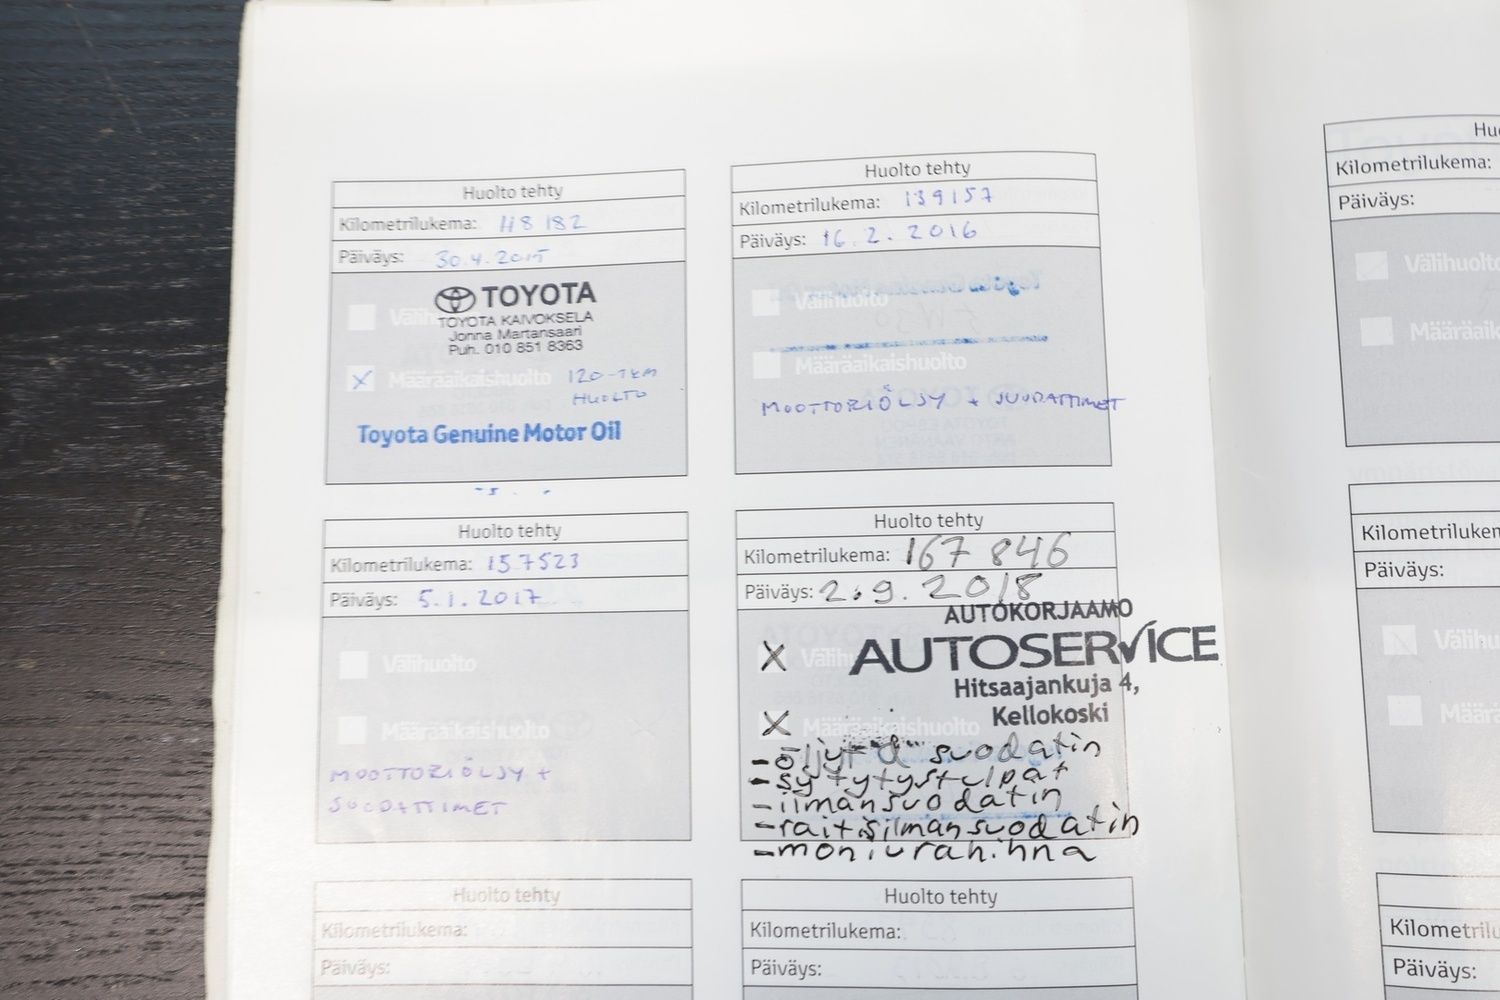 Huolto tehty
Kilometrilukema: 118 182
Päiväys: 30.4.2015
TOYOTA
TOYOTA KAIVOKSELA
Jonna Martansaari
Puh. 010 851 8363
X Määräaikaishuolto 120-TKM
HUOLTO
Toyota Genuine Motor Oil
Huolto tehty
Kilometrilukema: 139157
Päiväys: 16.2.2016
Välihuolto
Määräaikaishuolto
MOOTTORIÖLJY + SUODATTIMET
Huolto tehty
Kilometrilukema: 157523
Päiväys: 5.1.2017
Välihuolto
Määräaikaishuolto
MOOTTORIÖLJY +
SUODATTIMET
Huolto tehty
Kilometrilukema: 167 846
Päiväys: 2.9.2018
AUTOKORJAAMO
X AUTOSERVICE
Hitsaajankuja 4,
Kellokoski
X Määräaikaishuolto
suodatin
- sytytystulpat
- ilmansuodatin
- raitisilmansuodatin
- moniurahihna
Huolto tehty
Kilometrilukema:
Päiväys:
Huolto tehty
Kilometrilukema:
Päiväys:
Kilometrilukema:
Päiväys:
Välihuolto
Päiväys:
Päiväys: